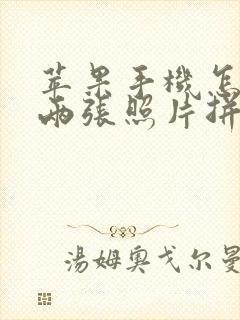 苹果手機怎
兩張照片拼
湯姆奧戈尔曼